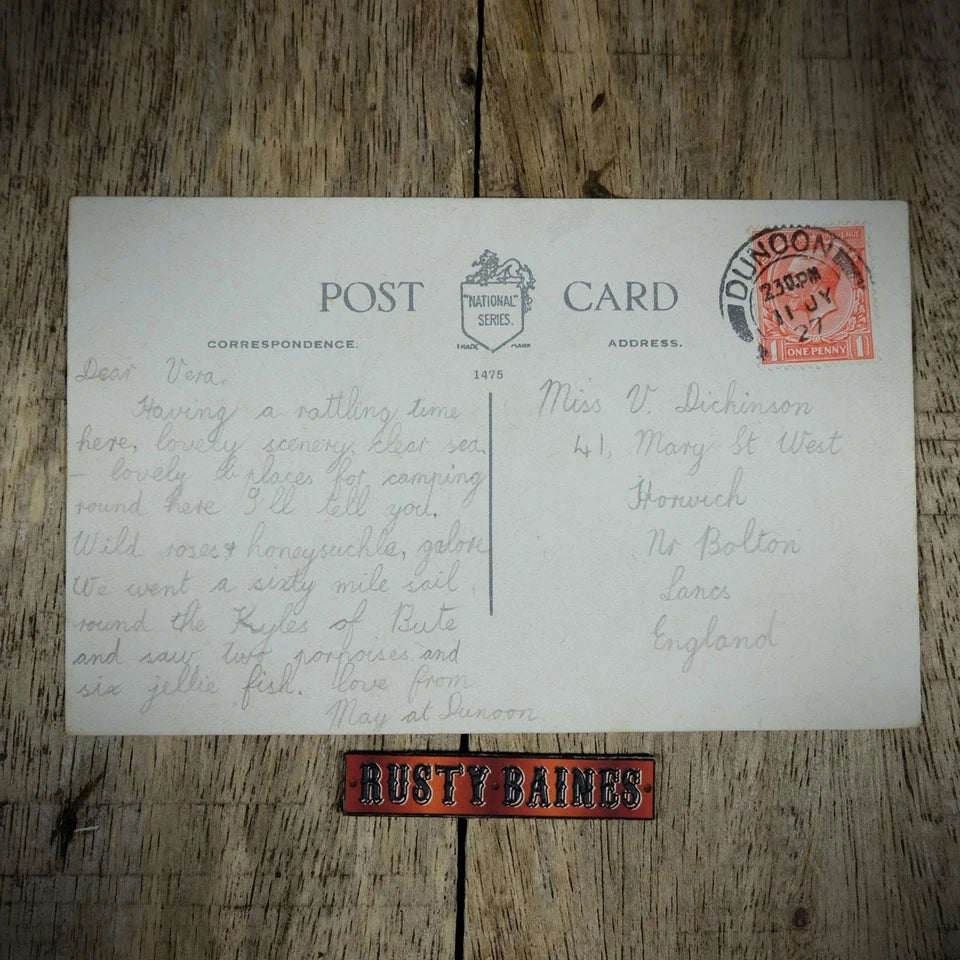 POST CARD
"NATIONAL"
SERIES.
TRADE MARK
CORRESPONDENCE.
ADDRESS.
1475
DUNOON
2 30.PM
11 JY
27
1 ONE PENNY 1
Dear Vera,
Having a rattling time
here, lovely scenery, clear sea.
- lovely places for camping
round here I'll tell you.
Wild roses & honeysuckle, galore
We went a sixty mile sail
round the Kyles of Bute
and saw two porpoises and
six jellie fish. love from
May at Dunoon.
Miss V. Dickinson
41, Mary St West
Horwich
Nr Bolton
Lancs
England
RUSTY·BAINES